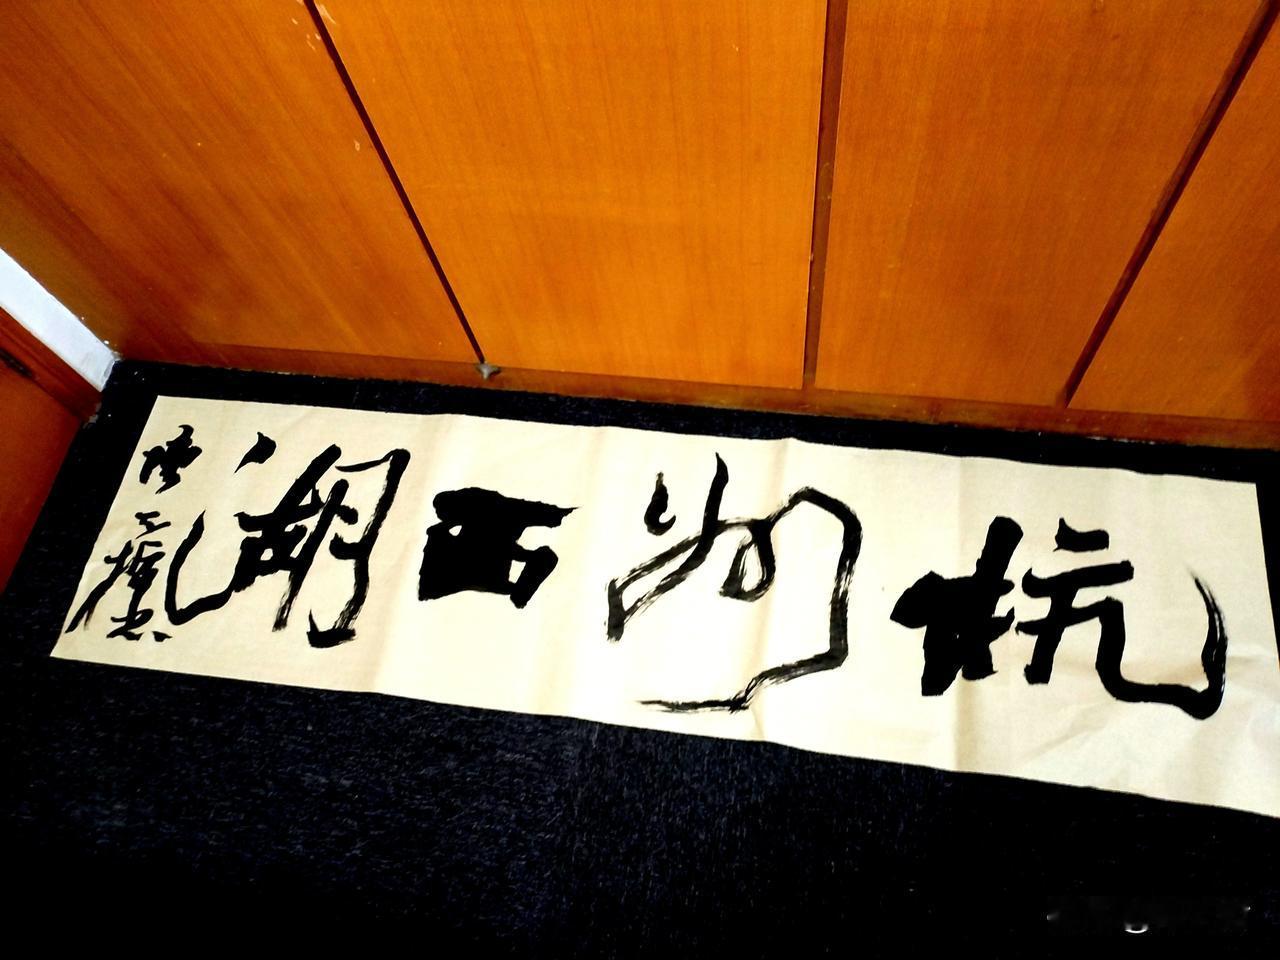 杭州西湖